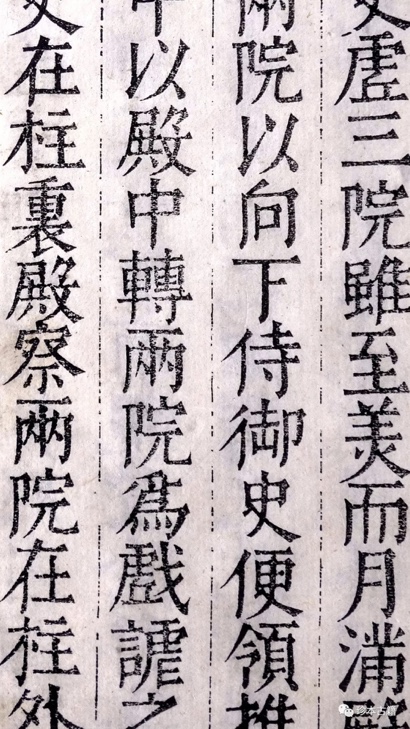 虚三院雖至美而月滿
兩院以向下侍御史便領推
中以殿中轉兩院爲戲謔之
史在柱裏殿察兩院在柱外
珍本古籍